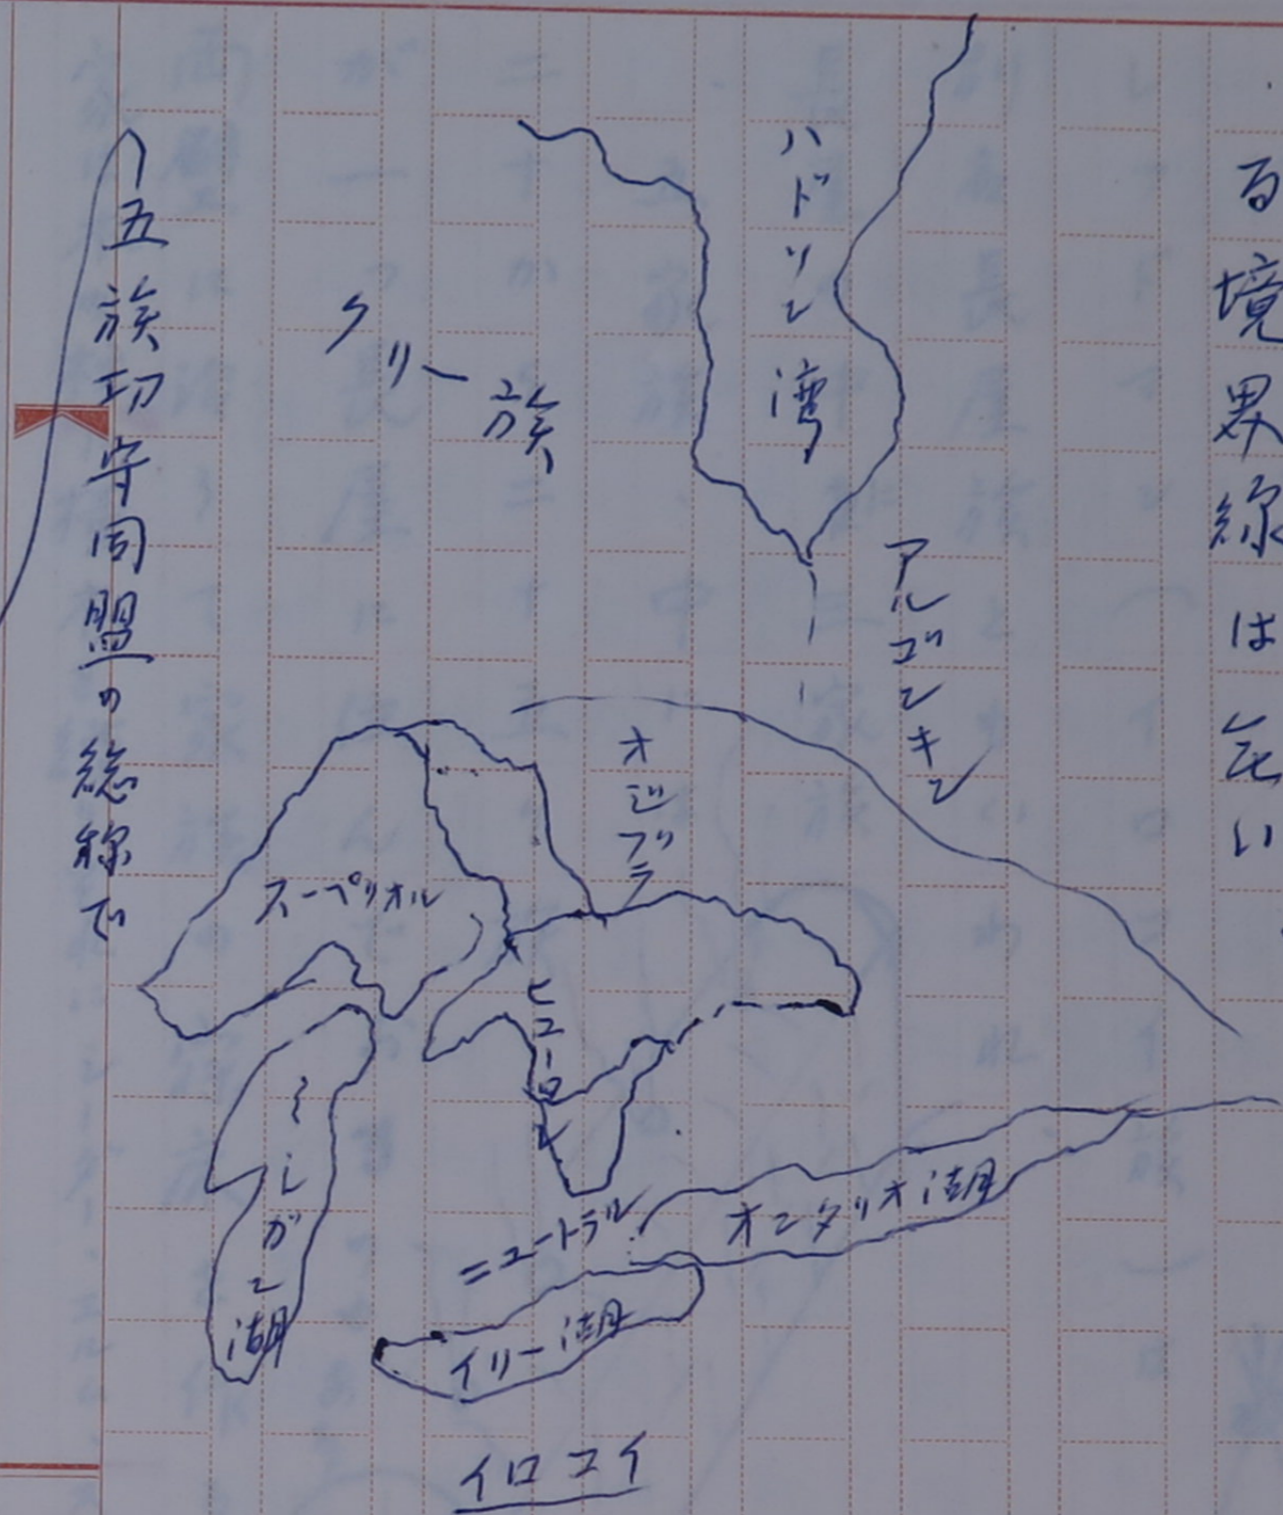 る境界線は無い
ハドソン湾
クリー族
アルゴンキン
オジブワ
スーペリオル
ヒューロン
ミシガン湖
ニュートラル
オンタリオ湖
イリー湖
イロコイ
五族功守同盟の総称で